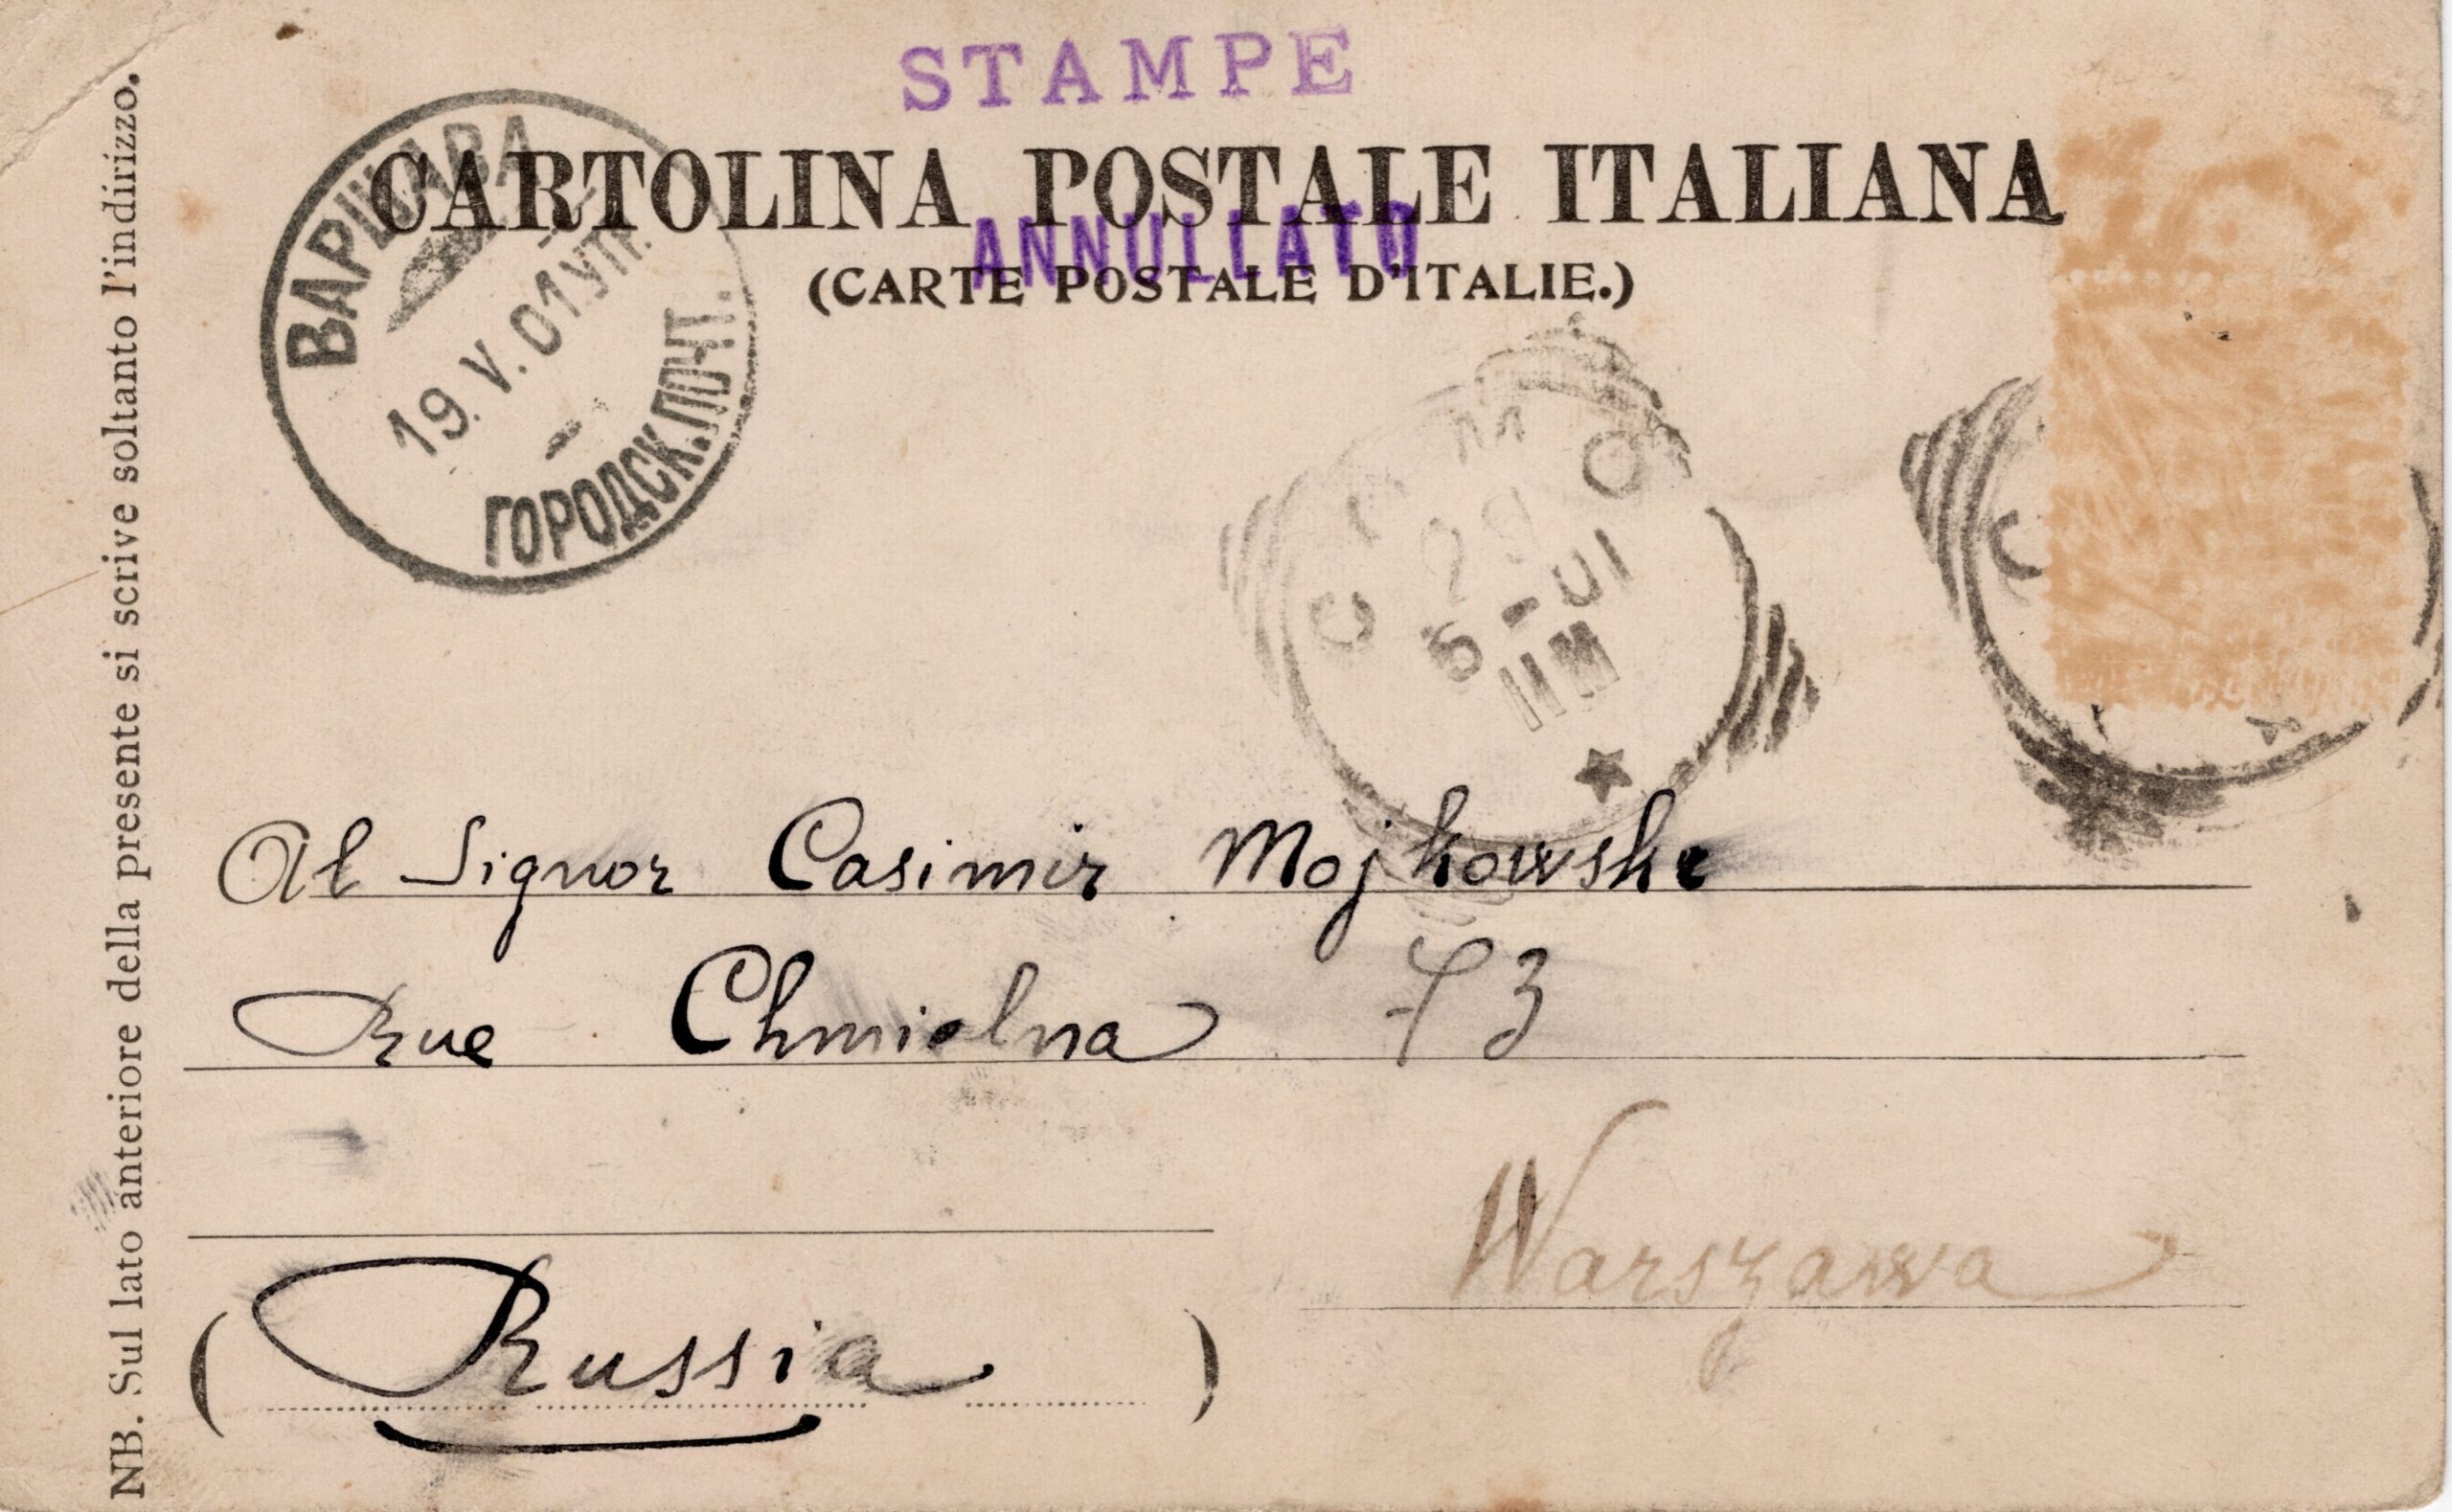 STAMPE
CARTOLINA POSTALE ITALIANA
ANNULLATO
(CARTE POSTALE D'ITALIE.)
ВАРШАВА
19. V. 01 УТР.
ГОРОДСК. ПОЧТ.
COMO
5-01
11M
C
Al Signor Casimir Mojkowski
Rue Chmielna 73
Warszawa
(Russia)
NB. Sul lato anteriore della presente si scrive soltanto l'indirizzo.